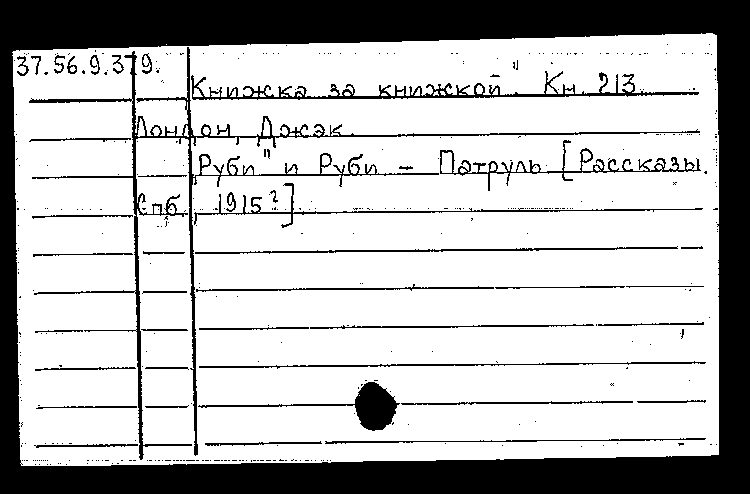 37.56.9.379.
Книжка за книжкой". Кн. 213.
Лондон, Джак.
"Руби" и Руби - Патруль [Рассказы.
Спб., 1915?]